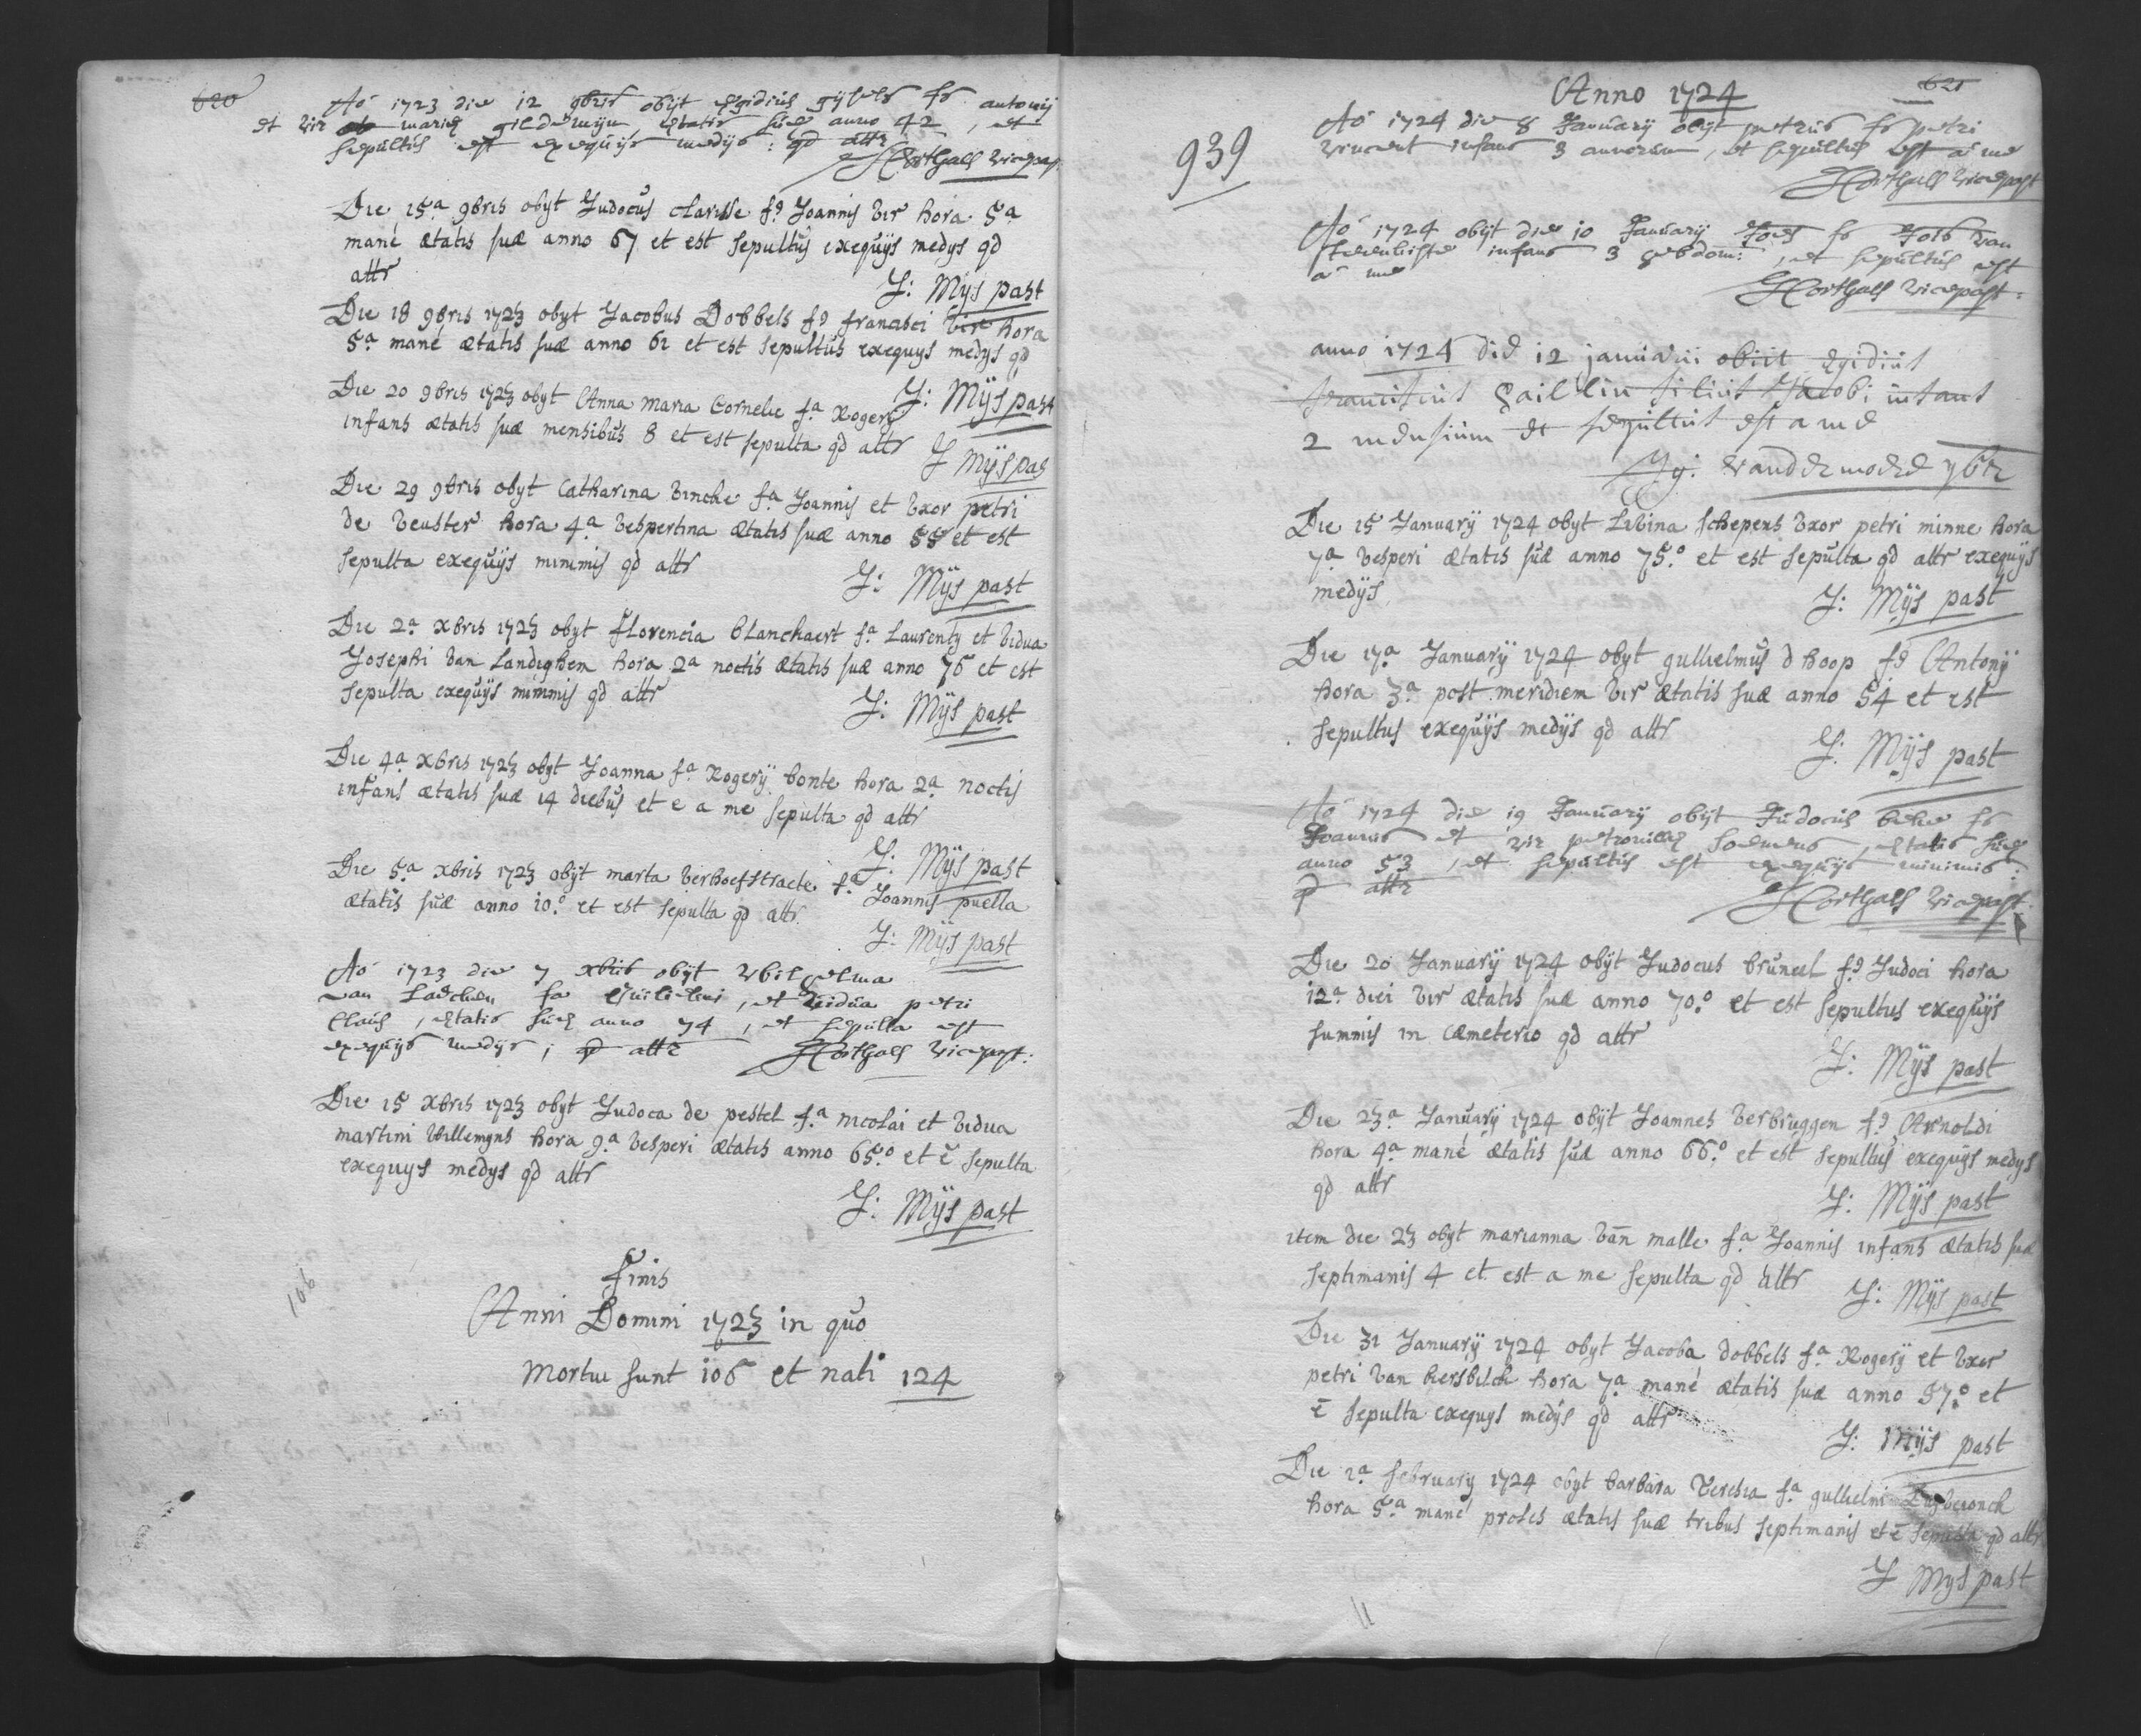 620
Ao 1723 die 12 9bris obijt Egidius gijsels fs antonij
et vir mariæ gildemijn ætatis suæ anno 42, et
sepultus est exequijs medijs: qd attr
Horthals vicepast
Die 15a 9bris obyt Judocus clarisse fs Joannis vir hora 5a
mané ætatis suæ anno 67 et est sepultus exequijs medys qd
attr
J: Mÿs past
Die 18 9bris 1723 obyt Jacobus Dobbels fs francisci vir hora
5a mané ætatis suæ anno 61 et est sepultus exequys medys qd
J: Mÿs past
Die 20 9bris 1723 obyt Anna Maria Cornelie fa Rogery
infans ætatis suæ mensibus 8 et est sepulta qd attr
J Mÿs pas
Die 29 9bris obyt Catharina vinche fa Joannis et vxor petri
de veuster hora 4a vespertina ætatis suæ anno 55 et est
sepulta exequijs minimis qd attr
J: Mÿs past
Die 2a xbris 1723 obyt florencia blanchaert fa Laurenty et vidua
Josephi van Landeghem hora 2a noctis ætatis suæ anno 76 et est
sepulta exequijs minimis qd attr
J: Mÿs past
Die 4a xbris 1723 obyt Joanna fa Rogerij bonte hora 2a noctis
infans ætatis suæ 14 diebus et e a me sepulta qd attr
J: Mÿs past
Die 5a xbris 1723 obijt marta verhoefstraete fa Joannis puella
ætatis suæ anno 10o et est sepulta qd attr
J: Mÿs past
Ao 1723 die 7 xbris obijt wbilhelma
van Laechen fa Guilielmi, et vidua petri
Claus, ætatis suæ anno 74, et sepulta est
exequijs medijs; qd attr Horthals vicepast:
Die 15 xbris 1723 obyt Judoca de pestel fa nicolai et vidua
martini Willemyns hora 9a vesperi ætatis anno 65o et ē sepulta
exequys medys qd attr
J: Mÿs past
106
Finis
Anni Domini 1723 in quo
Mortui sunt 106 et nati 124
621
Anno 1724
939
Ao 1724 die 8 Januarij obijt petrus fs petri
vincent infans 3 annorum, et sepultus est a me
Horthals vicepast
Ao 1724 obijt die 10 Januarij Joes fs Jois van
infans 3 hebdom:, et sepultus est
a me
Horthals vicepast:
anno 1724 die 12 januarii obiit egidius
franciscus gaillin filius Jacobi infans
2 mensium et sepultus est a me
vandermoere pbr
Die 15 Januarij 1724 obyt Livina schepens vxor petri minne hora
7a vesperi ætatis suæ anno 75o et est sepulta qd attr exequijs
medijs
J: Mÿs past
Die 17a Januarij 1724 obyt gullielmus d hoop fs Antonij
hora 3a post meridiem vir ætatis suæ anno 54 et est
sepultus exequijs medijs qd attr
J: Mÿs past
Ao 1724 die 19 Januarij obijt Judocus fs
Joannis et vir petronillæ soemens, ætatis suæ
anno 53, et sepultus est exequijs minimis:
qd attr
Horthals vicepast:
Die 20 Januarij 1724 obijt Judocus bruneel fs Judoci hora
12a diei vir ætatis suæ anno 70o et est sepultus exequijs
summis in cæmeterio qd attr
J: Mÿs past
Die 23a Januarij 1724 obijt Joannes verbruggen fs Arnoldi
hora 4a mané ætatis suæ anno 66o et est sepultus exequijs medys
qd attr
J: Mÿs past
item die 23 obyt marianna van malle fa Joannis infans ætatis suæ
septimanis 4 et est a me sepulta qd attr
J: Mÿs past
Die 31 Januarij 1724 obyt Jacoba dobbels fa Rogerij et vxor
petri van hersbilck hora 7a mané ætatis suæ anno 57o et
ē sepulta exequys medys qd attr
J: Mÿs past
Die 2a february 1724 obyt barbara Teresia fa gullielmi
hora 5a mané proles ætatis suæ tribus septimanis et ē sepulta qd attr
J Mys past